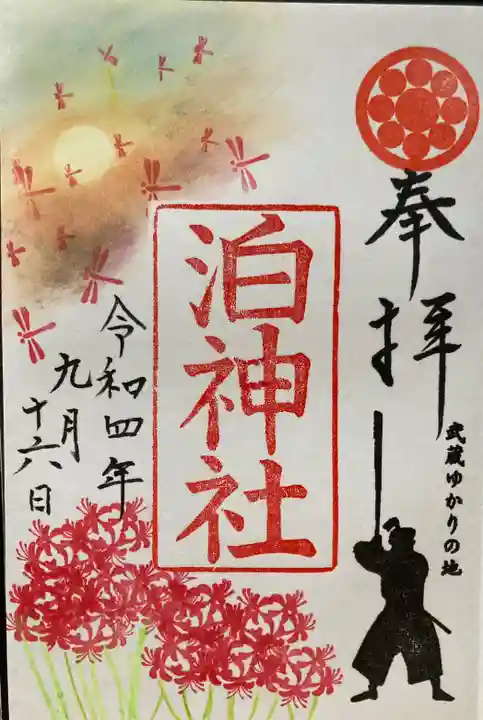 奉拝
武蔵ゆかりの地
泊神社
令和四年
九月
十六日